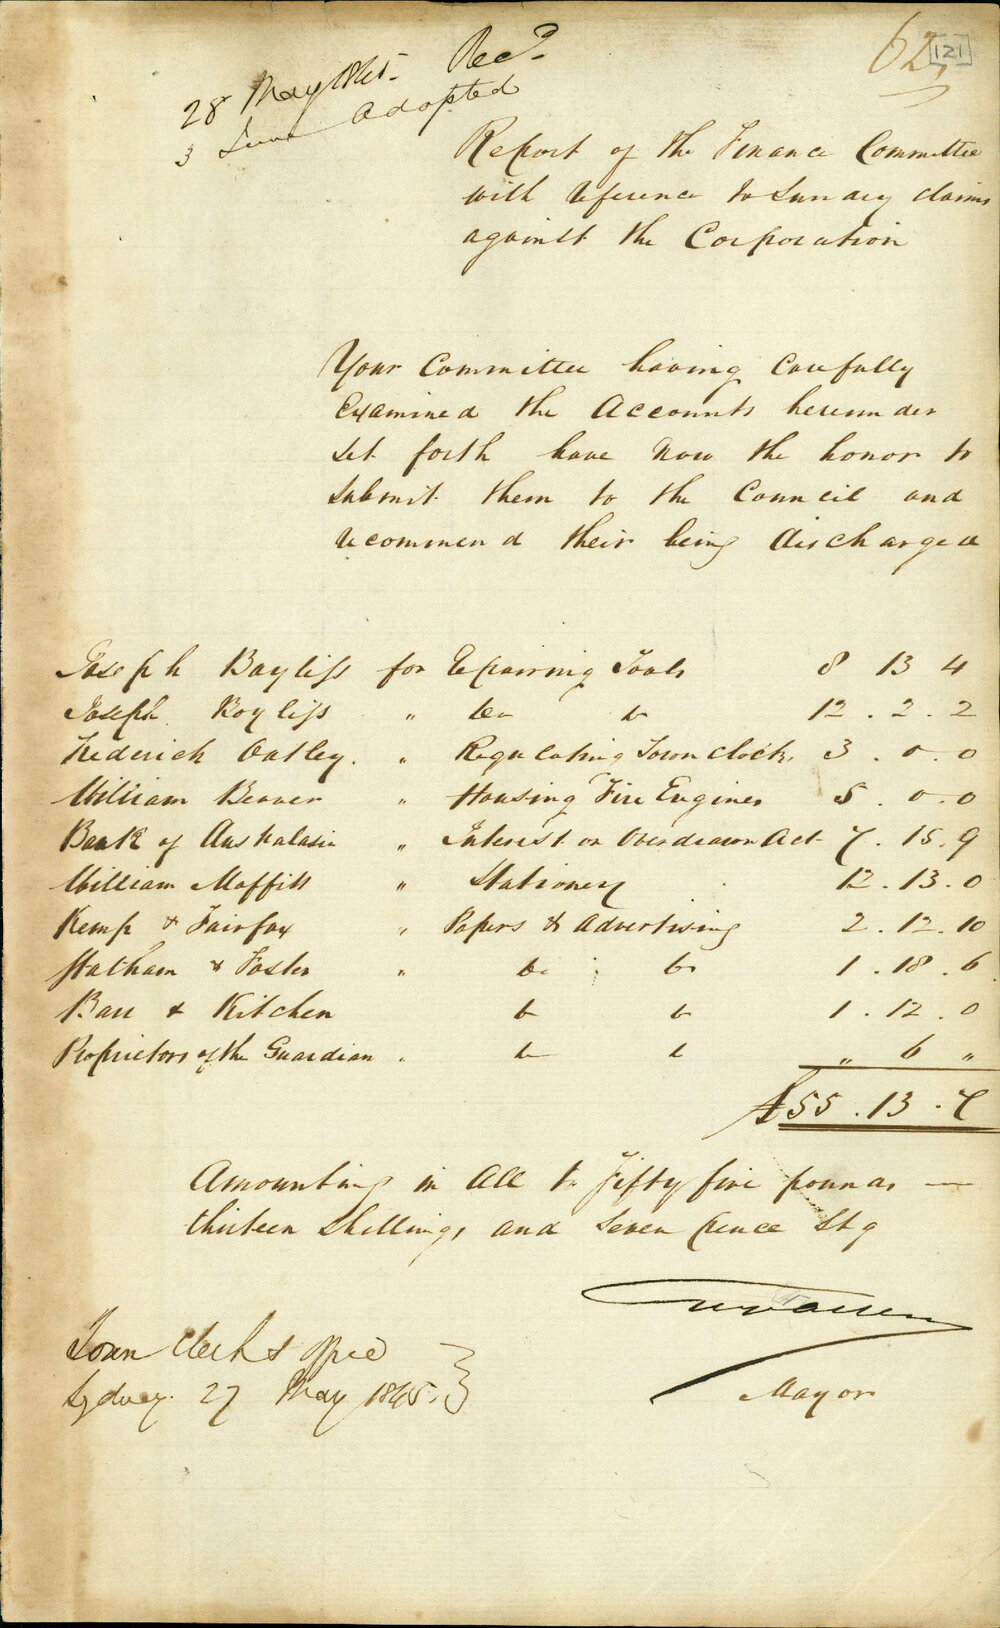 28 May 1845. Recd.
3 June Adopted
62
121
Report of the Finance Committee
with reference to Sundry claims
against the Corporation
Your Committee having Carefully
Examined the Accounts hereunder
set forth have now the honor to
submit them to the Council and
recommend their being discharged
Joseph Bayliss for Repairing Tools 8 13 4
Joseph Bayliss " Do Do 12 . 2 . 2
Frederick Oatley . " Regulating Town Clock. 3 . 0 . 0
William Beaver " Housing Fire Engines 5 . 0 . 0
Bank of Australasia " Interest on Overdrawn Act 7 . 15 . 9
William Moffitt " Stationery 12 . 13 . 0
Kemp & Fairfax " Papers & Advertising 2 . 12 . 10
Statham & Foster " Do Do 1 . 18 . 6
Barr & Kitchen Do Do 1 . 12 . 0
Proprietors of the Guardian " Do Do " 6 "
£55 . 13 . 7
Amounting in All to Fifty five pounds —
thirteen Shillings and Seven pence Stg
Town Clerks Office
Sydney. 27 May 1845.
Mayor